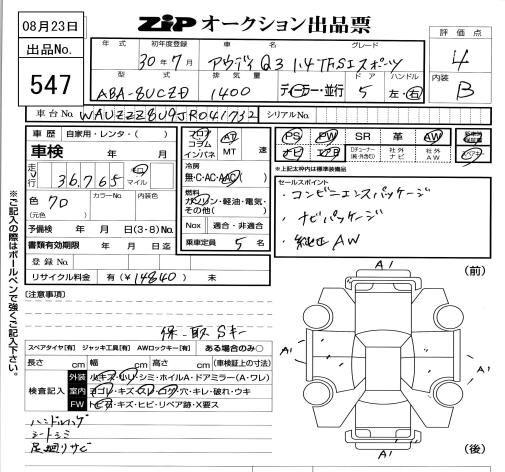 08月23日
ZIP オークション出品票
出品No.
547
年式
初年度登録
車名
グレード
30年7月
アウディ Q3 1.4 TFSI スポーツ
型式
排気量
ドア
ハンドル
ABA-8UCZD
1400
ディーラー・並行
5
左・右
評価点
4
内装
B
車台No.
WAUZZZ8U9JR041732
シリアルNo.
車歴
自家用・レンタ・( )
車検
年
月
走行
36,765
マイル
色
70
(元色 )
カラーNo.
内装色
予備検
年
月
日(3・6)Mo.
書類有効期限
年
月
日迄
登録No.
リサイクル料金
有(¥14840)
未
フロア
コラム
インパネ
AT
MT
速
冷房
無・C・AC・AAC
燃料
ガソリン・軽油・電気・
その他( )
Nox
適合・非適合
乗車定員
5
名
PS
PW
SR
革
AW
ナビ
エアB
社外
ナビ
社外
AW
※上記太枠内は標準装備品
セールスポイント
・コンビニエンスパッケージ
・ナビパッケージ
・純正AW
※ご記入の際はボールペンで強くご記入下さい。
[注意事項]
保・取 Sキー
スペアタイヤ[有]
ジャッキ工具[有]
AWロックキー[有]
ある場合のみ○
長さ
cm
幅
cm
高さ
cm
(車検証上の寸法)
検査記入
外装
小キズ・小凹・シミ・ホイルA・ドアミラー(A・ワレ)
室内
ヨゴレ・キズ・スレ・コゲ・穴・キレ・破れ・ウキ
FW
トビ石・キズ・ヒビ・リペア跡・X要ス
ハンドルスレ
シートシミ
足廻りサビ
(前)
A1
A1
A1
A1
(後)